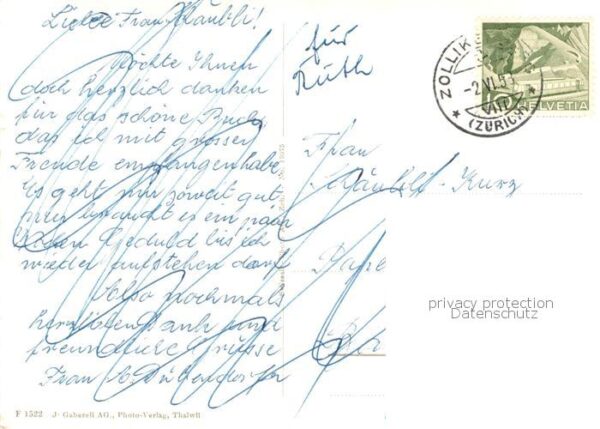 Liebe Frau Stäubli!
Möchte Ihnen
doch herzlich danken
für das schöne Buch,
das ich mit grosser
Freude empfangen habe.
Es geht mir soweit gut,
nur braucht es ein paar
Wochen Geduld bis ich
wieder aufstehen darf.
Also nochmals
herzlichen Dank und
freundliche Grüsse
Frau A. Dübendorfer
F 1522 J. Gaberell AG., Photo-Verlag, Thalwil
für
Ruth
Frau
Stäubli-Kurz
ZOLLIK
-2.VI.
VIII
(ZÜRICH)
HELVETIA
privacy protection
Datenschutz